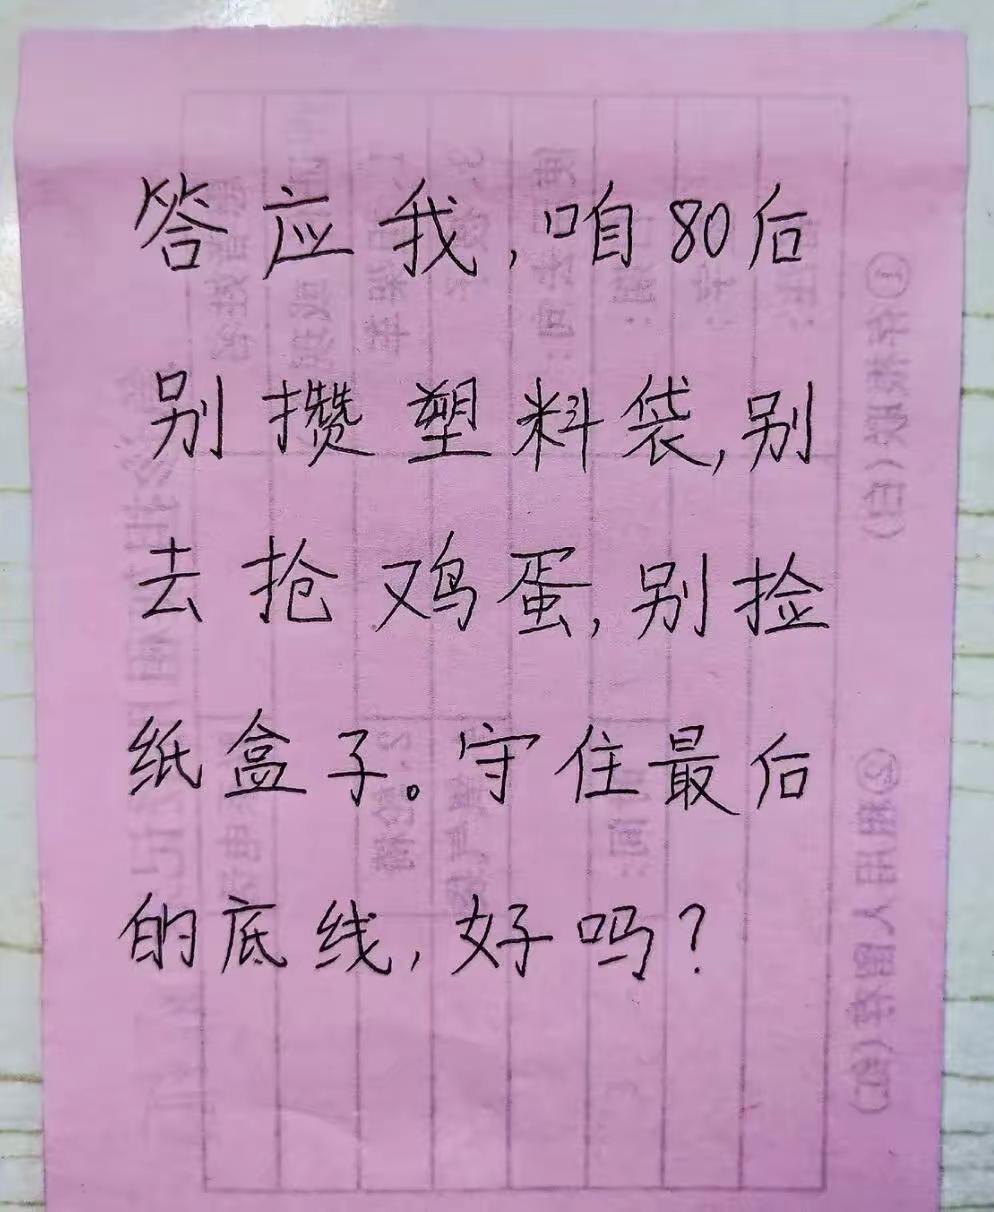 答应我,咱80后
别攒塑料袋,别
去抢鸡蛋,别捡
纸盒子。守住最后
的底线,好吗?